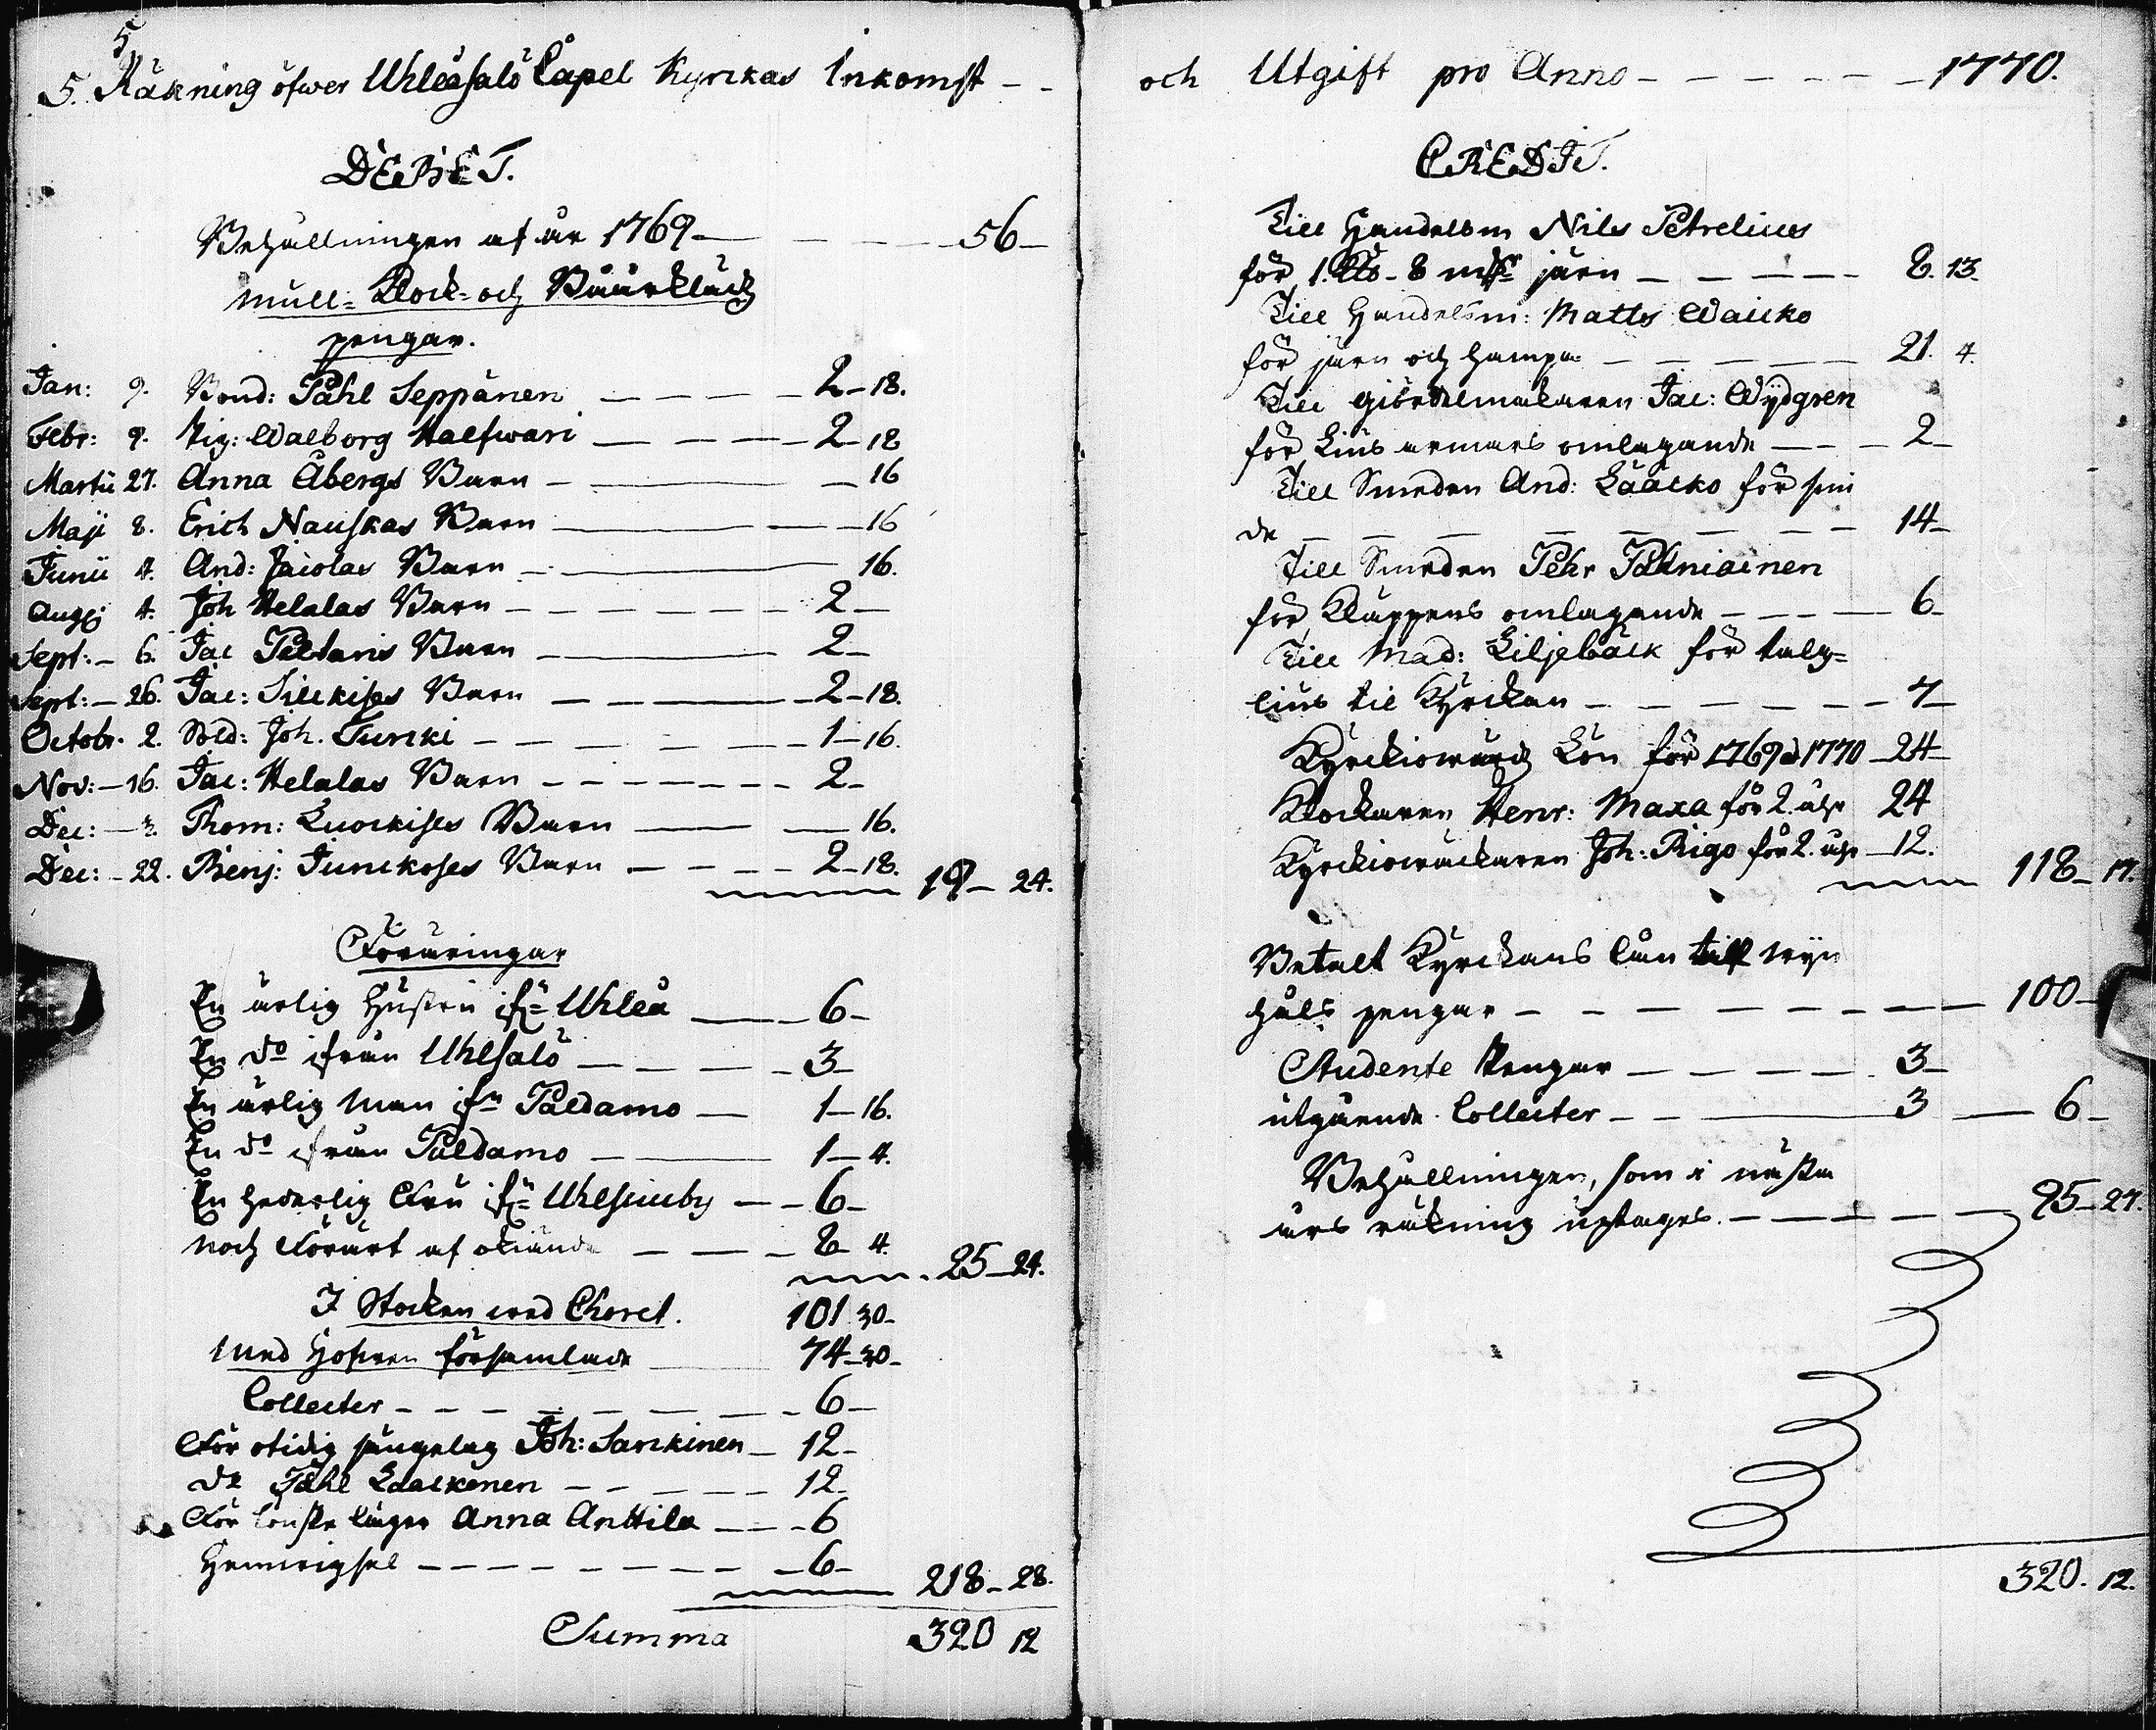 5
5. Räkning öfwer Uhleåsalo Capel Kyrckas Inkomst - -
DEBET.
Behållningen af år 1769 - - - - 56 -
Mull- Klock- och Båårkläds
pengar.
Jan: 9. Bond: Påhl Seppänen - - - - 2 - 18.
Febr: 9. Pig: Walborg Halfwari - - - - 2 - 18
Martii 27. Anna Åbergs Barn - - - 16
Maji 8. Erich Nauskas Barn - - - 16
Junii 4. And: Jaiolas Barn - - 16.
Augij 4. Joh Helalas Barn - - - - - - 2 -
Sept: - 6. Jac Paltaris Barn - - 2 -
Sept: - 26. Jac: Sillckises Barn - - - - 2 - 18.
Octobr. 2. Sold: Joh. Turcki - - - - - - 1 - 16.
Nov: - 16. Jac: Helalas Barn - - - - - - - 2 -
Dec: - 2. Thom: Luockises Barn - - 16.
Dec: - 22. Benj: Junckoses Barn - - - - 2 - 18. 19 - 24.
Föräringar
En ärlig Hustru ifn Uhleå - - 6 -
En do ifrån Uhlsalo - - - - - 3 -
En ärlig Man ifn Paldamo - 1 - 16.
En do ifrån Paldamo - - 1 - 4.
En hederlig Fru ifn Uhlsiuby - - 6 -
noch Förärt af okiände - - - 8 4. 25 - 24.
I Stocken wed Choret. 101 30 -
Med Hofwen församlade 74 - 30 -
Collecter - - - - - - - - 6 -
För otidig sängelag Joh: Sarckinen - 12 -
do Påhl Laackonen - - - - - 12 -
För lönska läger Anna Anttila - - - 6
Hemwigsel - - - - - - - - - 6 - 218 - 28.
Summa 320 12
och Utgift pro Anno - - - - - - 1770.
CREDIT.
Till Handelsm Nils Petrelius
för 1. - 8 järn - - - - - 8. 13.
Till Handelsm: Matts Waicko
för järn och hampa - - - - - 21. 4.
Till giördelmakaren Jac: Wydgren
för Lius armars omlagande - - - 2 -
Till Smeden And: Lååcko för smi
de - - - - - - - - 14 -
Till Smeden Pehr Patniainen
för Kläppens omlagande - - - - 6 -
Till Mad: Liljebäck för talg-
lius til Kyrckan - - - - - - - 7 -
Kyrckiowärds Lön för 1769 o 1770 - 24 -
Klockaren Henr: Maxa för 2. åhr 24
Kyrckiowäckaren Joh: Rigo för 2. åhr - 12. 118 - 17.
Betalt Kyrckans lån till wyn
håls pengar - - - - - - - - - 100 -
Studente Pengar - - - - - 3 -
utgående Collecter - - 3 - 6 -
Behållningen, som i nästa
års räkning uptages. - - - - - 95 - 27.
320. 12.